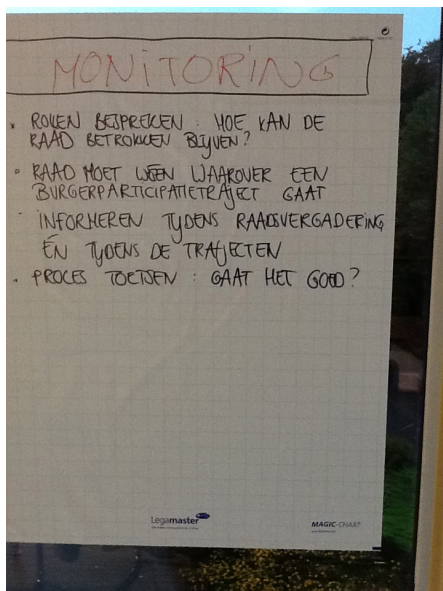 MONITORING
• ROLLEN BESPREKEN : HOE KAN DE
RAAD BETROKKEN BLIJVEN?
• RAAD MOET WETEN WAAROVER EEN
BURGERPARTICIPATIETRAJECT GAAT
- INFORMEREN TIJDENS RAADSVERGADERING
ÉN TIJDENS DE TRAJECTEN
• PROCES TOETSEN : GAAT HET GOED?
Legamaster
MAGIC-CHART